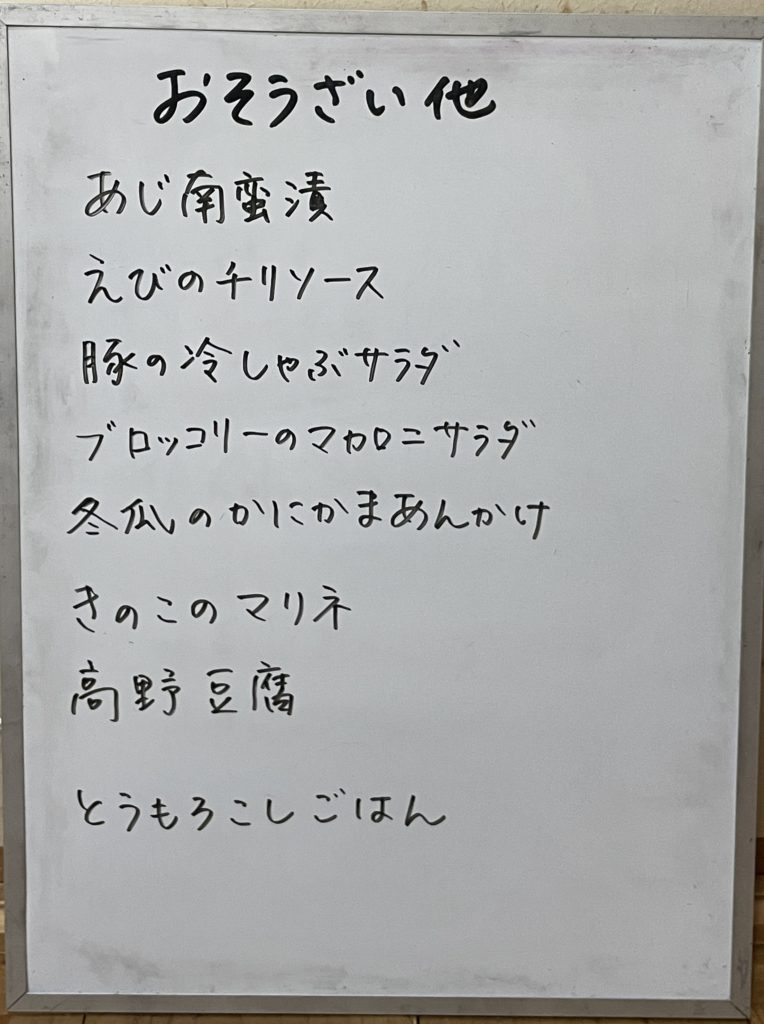 おそうざい他
あじ南蛮漬
えびのチリソース
豚の冷しゃぶサラダ
ブロッコリーのマカロニサラダ
冬瓜のかにかまあんかけ
きのこのマリネ
高野豆腐
とうもろこしごはん